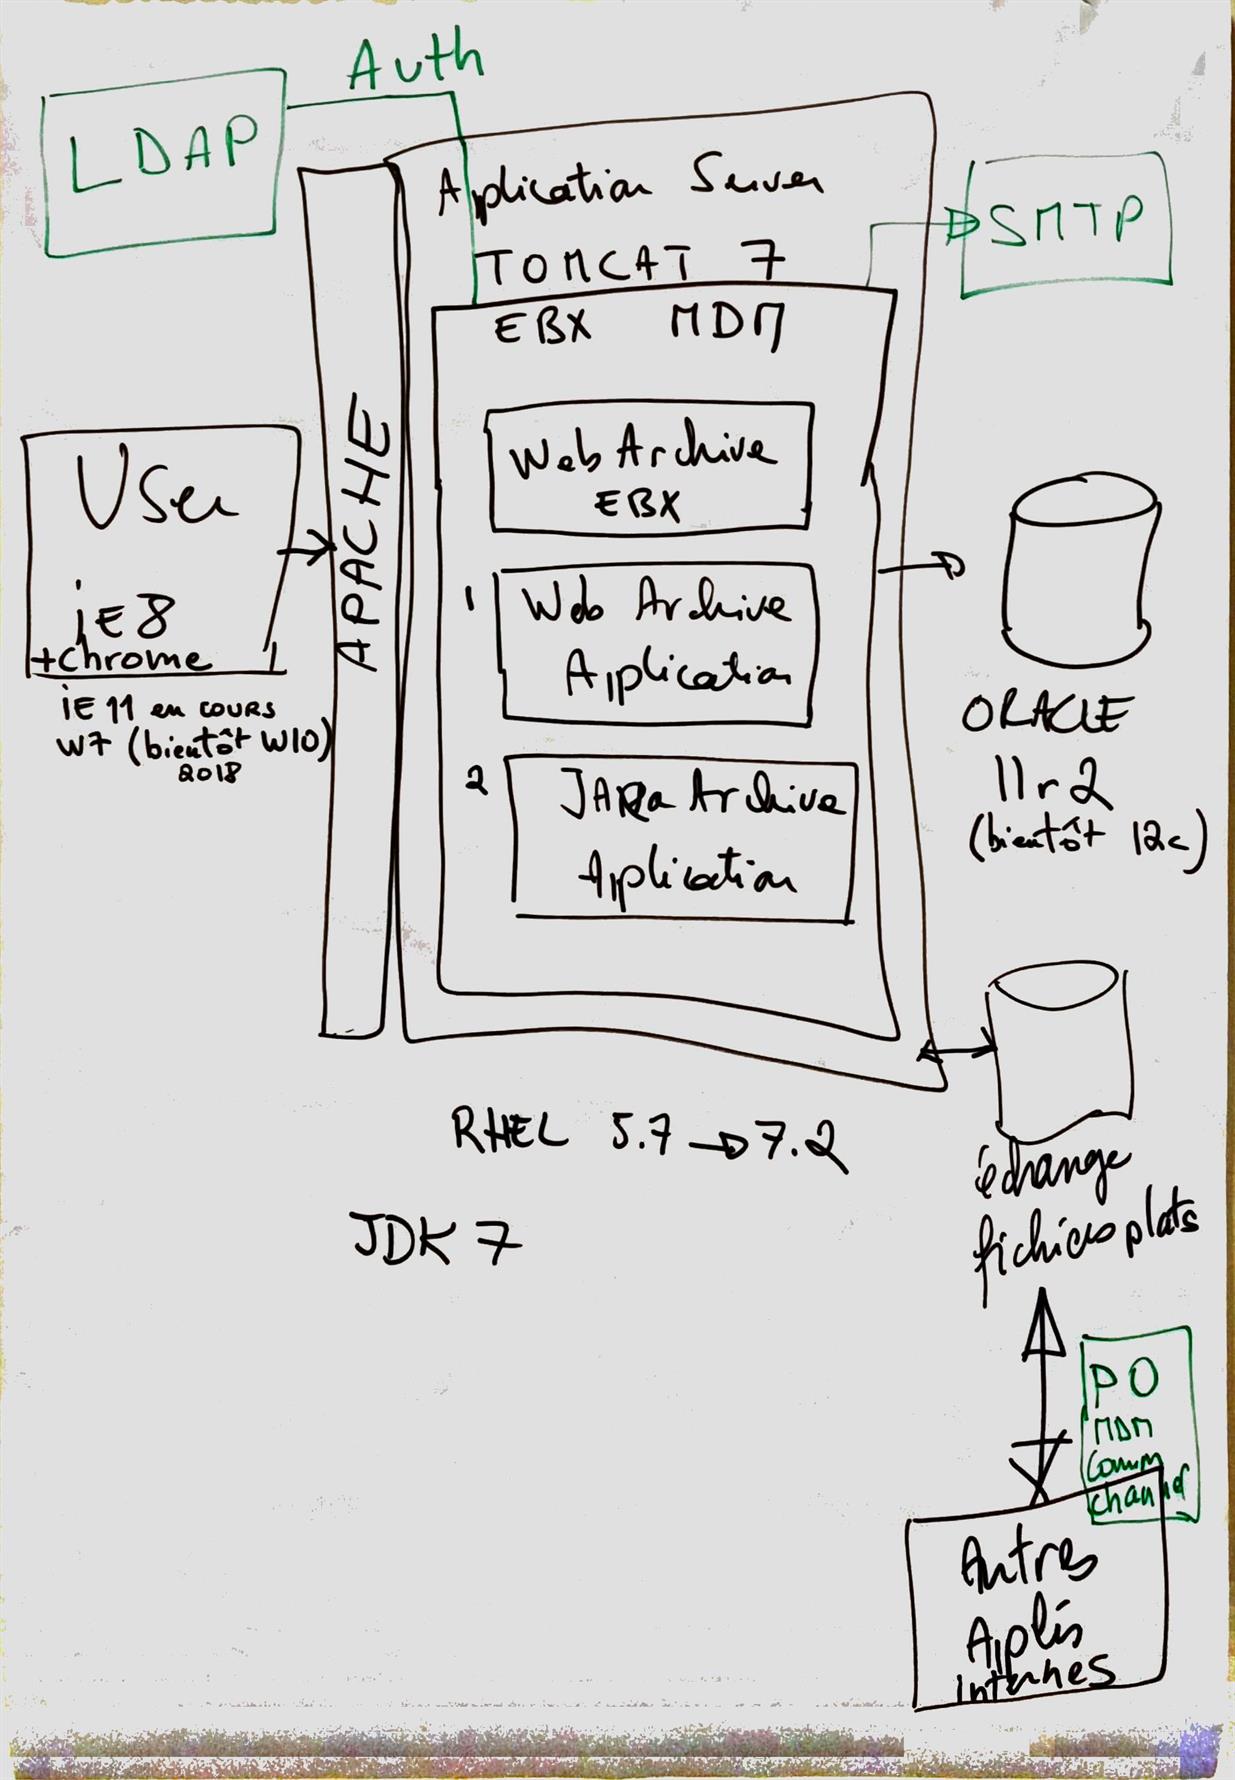 Auth
LDAP
Application Server
SMTP
TOMCAT 7
EBX MDM
APACHE
Web Archive
EBX
User
iE8
+chrome
iE 11 en cours
W7 (bientôt W10)
2018
1
Web Archive
Application
2
Archive
Application
ORACLE
11r2
(bientôt 12c)
RHEL 5.7 → 7.2
JDK 7
échange
fichiers plats
PO
MDM
Comm
channel
Autres
Applis
internes